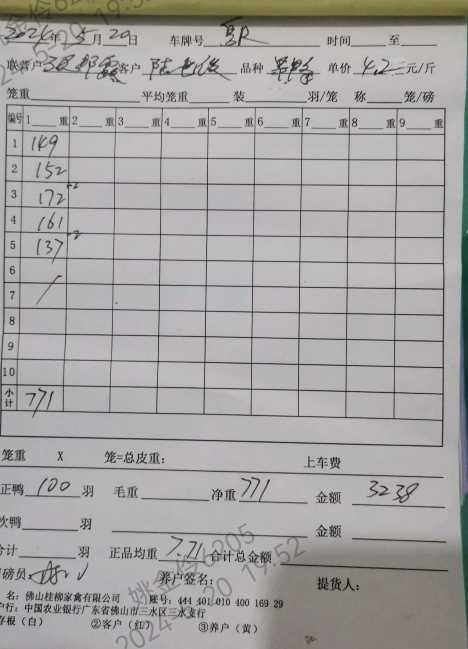 2024年5月29日 车牌号 时间 至
联养户 客户 品种 单价 4.2 元/斤
笼重 平均笼重 装 羽/笼 称 笼/磅
编号 1 重 2 重 3 重 4 重 5 重 6 重 7 重 8 重 9 重
1 149
2 152
3 172 +2
4 161
5 137 +2
6
7
8
9
10
小计 771
笼重 X 笼=总皮重: 上车费
正鸭 100 羽 毛重 净重 771 金额 3238
次鸭 羽 金额
合计 羽 正品均重 7.71 合计总金额
磅员: 养户签名: 提货人:
名: 佛山桂柳家禽有限公司 账号: 444 401 010 400 169 29
户行: 中国农业银行广东省佛山市三水区三水支行
存根(白) ②客户(红) ③养户(黄)
姚金伶6205
2024 20 19:52